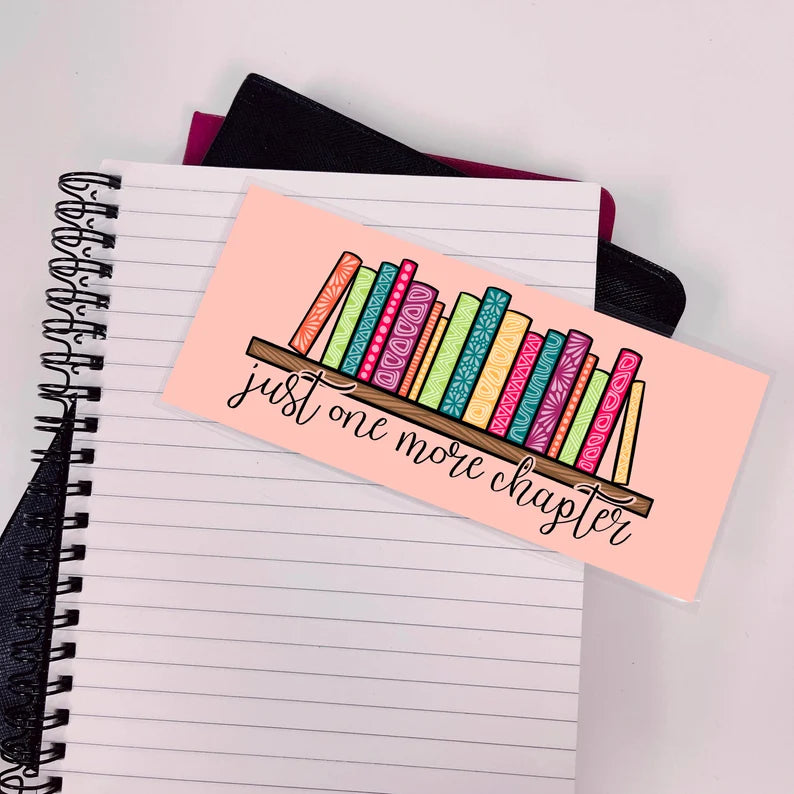 just one more chapter